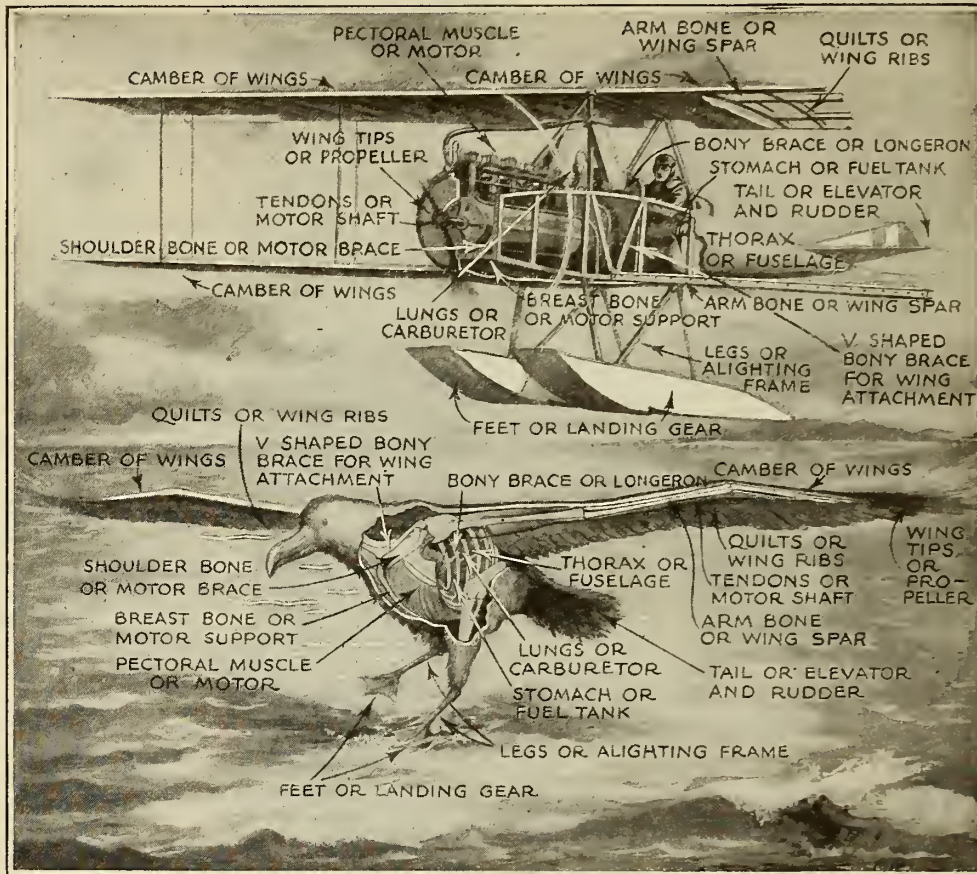 PECTORAL MUSCLE
OR MOTOR
ARM BONE OR
WING SPAR
QUILTS OR
WING RIBS
CAMBER OF WINGS
CAMBER OF WINGS
WING TIPS
OR PROPELLER
BONY BRACE OR LONGERON
STOMACH OR FUEL TANK
TAIL OR ELEVATOR
AND RUDDER
TENDONS OR
MOTOR SHAFT
SHOULDER BONE OR MOTOR BRACE
THORAX
OR FUSELAGE
CAMBER OF WINGS
LUNGS OR
CARBURETOR
BREAST BONE
OR MOTOR SUPPORT
ARM BONE OR WING SPAR
LEGS OR
ALIGHTING
FRAME
V. SHAPED
BONY BRACE
FOR WING
ATTACHMENT
FEET OR LANDING GEAR
QUILTS OR WING RIBS
CAMBER OF WINGS
V SHAPED BONY
BRACE FOR WING
ATTACHMENT
BONY BRACE OR LONGERON
CAMBER OF WINGS
SHOULDER BONE
OR MOTOR BRACE
THORAX OR
FUSELAGE
QUILTS OR
WING RIBS
TENDONS OR
MOTOR SHAFT
WING
TIPS
OR
PRO-
PELLER
BREAST BONE OR
MOTOR SUPPORT
ARM BONE
OR WING SPAR
PECTORAL MUSCLE
OR MOTOR
LUNGS OR
CARBURETOR
TAIL OR ELEVATOR
AND RUDDER
STOMACH OR
FUEL TANK
LEGS OR ALIGHTING FRAME
FEET OR LANDING GEAR